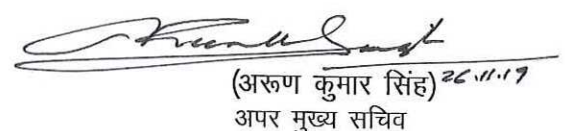 (अरुण कुमार सिंह) 26.11.19
अपर मुख्य सचिव